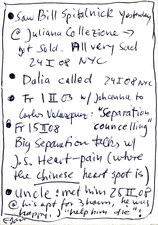 • Saw Bill Spitalnick yesterday
@ Juliana Collezione →
get sold. All very sad
24 I 08 NYC
• Dalia called 24 I 08 NYC
• Fr 1 II 03 w/ Johanna to
Carlos Velazquez: "Separation
councelling"
Fr 15 II 08
Big Separation talks w/
J. S. Heart-pain (where
the chinese heart spot is)
• Uncle: met him 25 II 08
@ his apt for 3 hours, he was
happy. "help him die"!